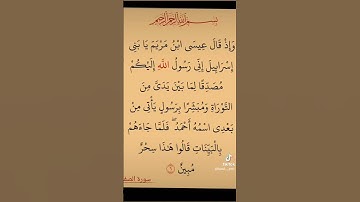 بسم الله الرحمن الرحيم
وَإِذْ قَالَ عِيسَى ابْنُ مَرْيَمَ يَا بَنِي
إِسْرَابِيلَ إِنِّي رَسُولُ اللَّهِ إِلَيْكُمْ
مُصَدِّقًا لِمَا بَيْنَ يَدَيَّ مِنَ
التَّوْرَاةِ وَمُبَشِّرًا بِرَسُولٍ يَأْتِي مِنْ
بَعْدِي اسْمُهُ أَحْمَدُ ۖ فَلَمَّا جَاءَهُمْ
بِالْبَيِّنَاتِ قَالُوا هَذَا سِحْرٌ
مُبِينٌ ٦
سورة الصف